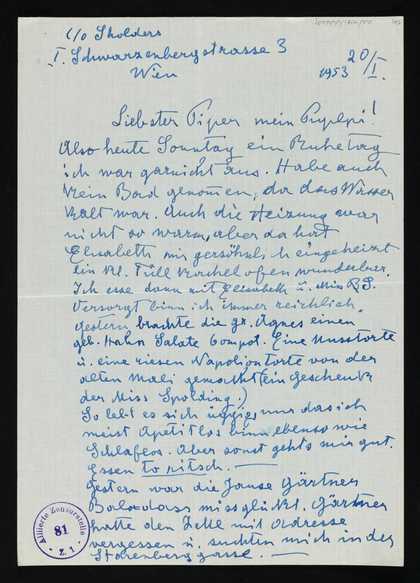 c/o Skolders
I. Schwarzenbergstrasse 3
Wien
20/I.
1953
Liebster Piper mein Puplpi!
Also heute Sonntag ein Ruhetag
ich war garnicht aus. Habe auch
kein Bad genomen, da das Wasser
kalt war. Auch die Heizung war
nicht so warm, aber da hat
Elisabeth mir persöhnlich eingeheizt
ein kl. Füll Kachelofen wunderbar.
Ich esse dann mit Elisabeth u. Min P.S.
Versorgt binn ich immer reichlich.
Gestern brachte die gr. Agnes einen
geb. Hahn Salate Compot. Eine Nusstorte
u. eine riesen Napoljontorte von der
alten Mali gemacht (ein Geschenk
der Miss Spolding.)
So lebt es sich nur das ich
meist Apetitlos binn ebenso wie
Schlaflos. Aber sonst gehts mir gut.
Essen to ritsch.
Gestern war die Jause Gärtner
missglückt. Gärtner
hatte den Zettl mit Adresse
vergessen u. suchten mich in der
Starenberggasse.
Alliierte Zensurstelle
81
Z. 1